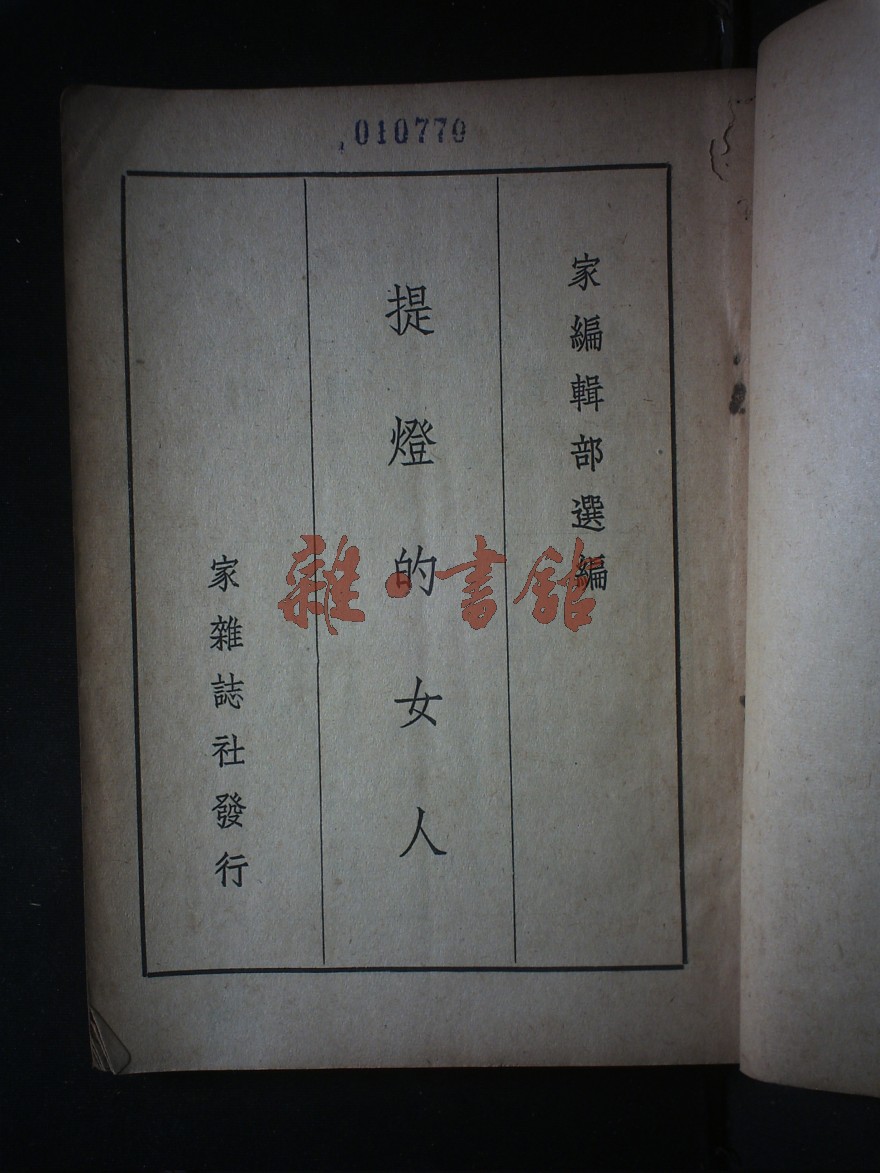 010770
家編輯部選編
提燈的女人
家雜誌社發行
雜·書館